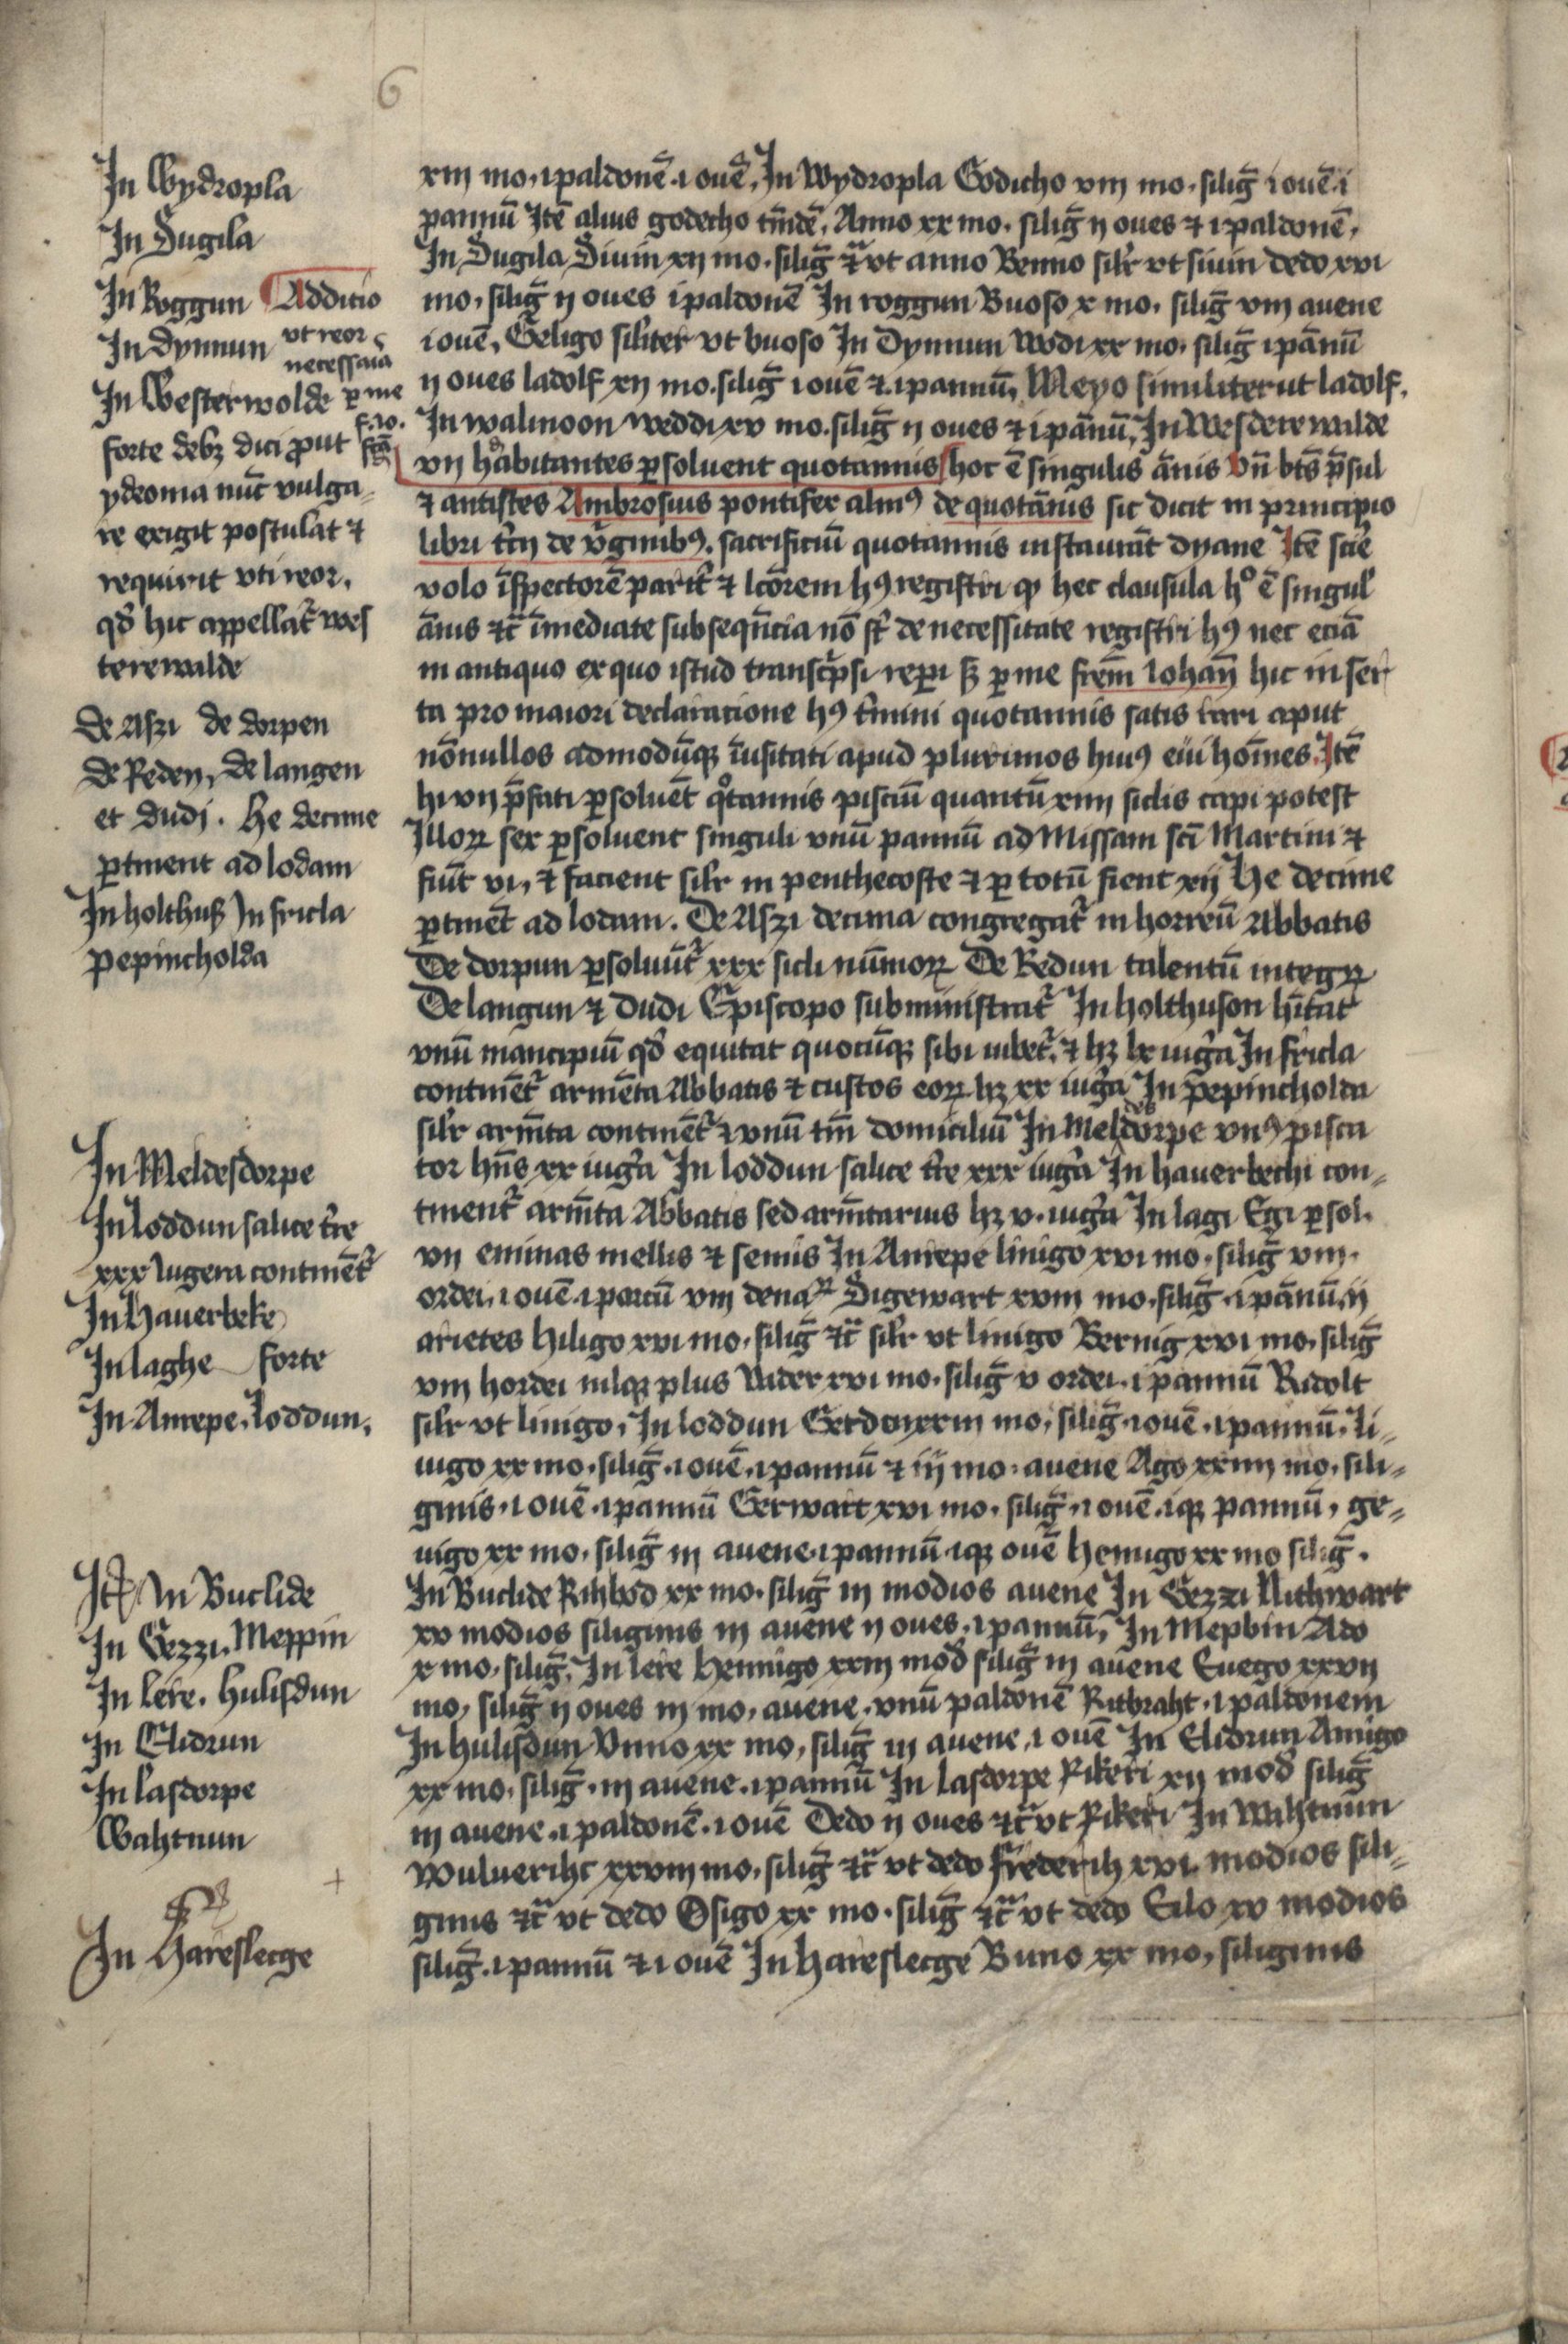 6
In Wydropla
In Sugila
In Roggun Additio
In dynnun vt reor
necessaria
In Westerwolde per me
f. io.
forte debꝫ dici ꝓut
ydeoma nūc vulga„
re exigit postulat ⁊
requirit vti reor.
qd̄ hic appellat᷑ wes
terewalde
De Aszi de dorpen
de Reden, de langen
et dudi. He decime
ꝑtinent ad lodam
In holthusz In fricla
pepincholda
In Meldesdorpe
In loddun salice tr̄e
xxx Iugera continēt᷑
In Hauerbeke
In laghe forte
In Anrepe. Loddun.
Itē In Buclide
In Gezzi. Meppin
In lere. Hulisdun
In Elidrun
In Lasdorpe
Wahtnun
In Hareslecge
xiii mo. i paldonē. i ouē. In Wydropla Godicho viii mo. siligͣ i ouē i
pannū Itē alius godecho tm̄dē. Anno xx mo. siligͣ ii oues ⁊ i paldonē.
In Sugila Siuin xii mo. siligͣ ⁊c̄ vt anno Benno silr̄ vt siuin dedo xvi
mo. siligͣ ii oues i paldonē In roggun Buoso x mo. siligͣ viii auene
i ouē. Geligo silr̄iter vt buoso In Dynnun Wodi xx mo. siligͣ i pānū
ii oues ladolf xii mo. siligͣ i ouē ⁊ i pannū, Meyo similiter ut ladolf.
In walinoon weddi xv mo. siligͣ ii oues ⁊ i pānū, In Wesderewalde
vii habitantes ꝑsoluent quotannis hoc ē singulis ānis Vn̄ bt̄s p̄sul
⁊ antistes Ambrosius pontifex almꝰ de quotānis sic dicit in principio
libri t̄cij de v̄ginibꝰ. sacrificiū quotannis instaurāt dyane Itē scire
volo īspectorē parit᷑ ⁊ lc̄orem hꝰ registri ꝙ hec clausula hº ē singul᷑
ānis ⁊c̄ īmediate subseqn̄cia nō st̄ de necessitate registri hꝰ nec eciā
in antiquo ex quo istud transcp̄si reꝑi sꝫ ꝑ me frēm Iohan̄ hic inser
ta pro maiori declaracione hꝰ t̄mini quotannis satis rari aput
nōnullos admodūqꝫ īusitati apud plurimos huiꝰ eui hom̄es. Itē
hi vii p̄fati ꝑsoluēt qͦtannis pisciū quantū xiiii siclis capi potest
Illoꝝ sex ꝑsoluent singuli vnū pannū ad Missam sc̄i Martini ⁊
fiūt vi, ⁊ facient silr̄ in penthecoste ⁊ ꝑ totū fient xij He decime
ꝑtinēt ad lodam. De Aszi decima congregat᷑ in horreū Abbatis
De dorpun ꝑsoluūt᷑ xxx sicli nūmoꝝ De Redun talentū integꝝ
De langun ⁊ Dudi Episcopo subministrat᷑ In holthuson hītat
vnū mancipiū qd̄ equitat quocūqꝫ sibi iubet᷑. ⁊ hꝫ lx iuḡa In fricla
continēt᷑ armēta Abbatis ⁊ custos eoꝝ hꝫ xx iuḡa In pepincholda
silr̄ arm̄ta continēt᷑ ⁊ vnū tm̄ domiciliū In Meldesdorpe vnꝰ pisca
tor hn̄s xx iuḡa In loddun salice tr̄e xxx iuḡa In hauerbechi con„
tinent᷑ arm̄ta Abbatis sed arm̄tarius hꝫ v. iuḡa In lagi Egi ꝑsol.
vii eminas mellis ⁊ semis In Anrepe linigo xvi mo. siligͣ viii.
ordei. i ouē. i porcū viii denaꝝ Sigewart xviii mo. siligͣ. i pānū. ii
arietes hiligo xvi mo. siligͣ ⁊c̄ silr̄ vt linigo Bernig xvi mo. siligͣ
viii hordei nilqꝫ plus Wider xvi mo. siligͣ v ordei. i pannū Radolt
silr̄ vt linigo. In loddun Gerdag xxiii mo. siligͣ. i ouē. i pannū. Li„
iugo xx mo. siligͣ. i ouē. i pannū ⁊ iij mo. auene Ago xxiiii mo. sili„
ginis. i ouē. i pannū Gerwart xvi mo. siligͣ. i ouē. iqꝫ pannū. ge„
uigo xx mo. siligͣ iii auene. i pannū iqꝫ ouē hemigo xx mo siligͣ.
In Buclide Rihbod xx mo. siligͣ iii modios auene In Gezzi Nithwart
xv modios siliginis iii auene ii oues. i pannū, In Mepbin Ado
x mo. siligͣ. In lere hemigo xxiii mod̄ siligͣ iii auene Euego xxvii
mo. siligͣ ii oues iii mo. auene. vnū paldonē Ricbraht. i paldonem
In hulisdun Vnno xx mo. siligͣ iii auene. i ouē In Elidrun Amigo
xx mo. siligͣ. iii auene. i pannū In Lasdorpe Rikeri xii mod̄ siligͣ
iii auene. i paldonē. i ouē Dedo ii oues ⁊c̄ vt Rikeri In Wahtnun
Wuluerihc xxviii mo. siligͣ ⁊c̄ vt dedo Frederih xvi modios sili„
ginis ⁊c̄ vt dedo Osigo xx mo. siligͣ ⁊c̄ vt dedo Eilo xv modios
siligͣ. i pannū ⁊ i ouē In Hareslecge Buno xx mo. siliginis